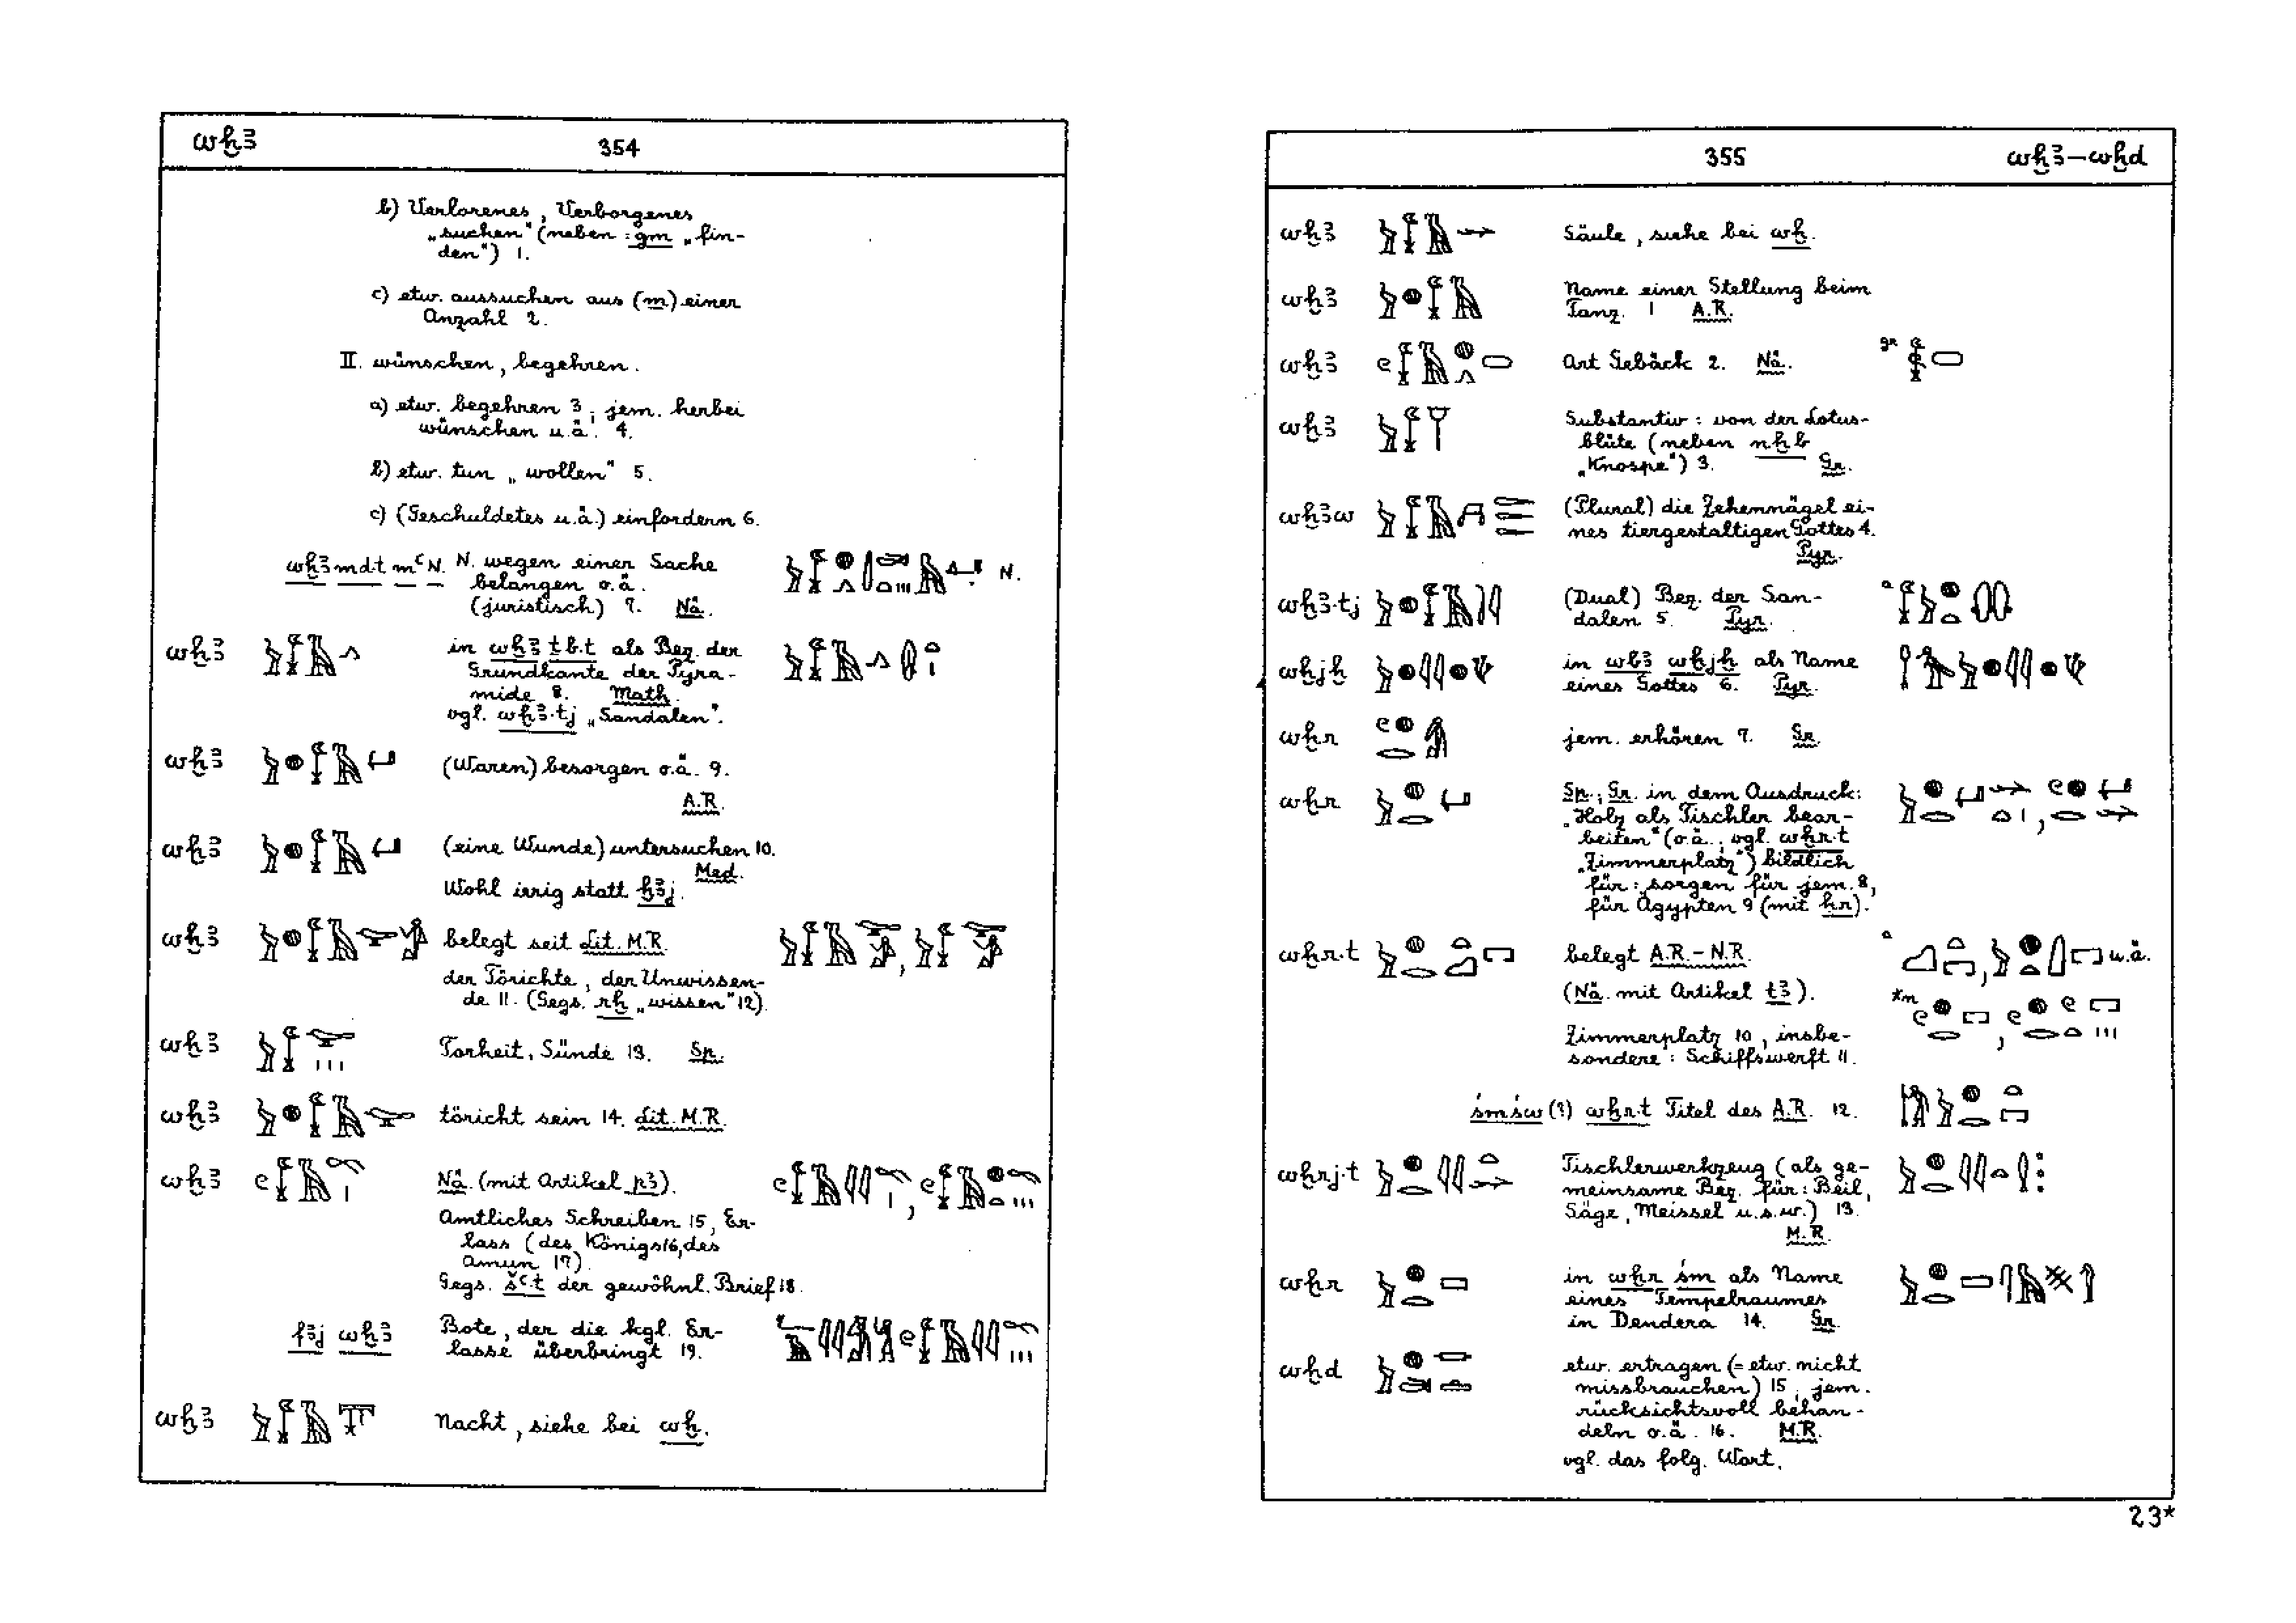 wḫꜣ 354
b) Verlorenes, Verborgenes
„suchen“ (neben: gm „fin-
den“) 1.
c) etw. aussuchen aus (m) einer
Anzahl 2.
II. wünschen, begehren.
a) etw. begehren 3; jem. herbei
wünschen u.ä. 4.
b) etw. tun „wollen“ 5.
c) (Geschuldetes u.ä.) einfordern 6.
wḫꜣ md.t mꜥ N. N. wegen einer Sache N.
belangen o.ä.
(juristisch) 7. Nä.
wḫꜣ in wḫꜣ tb.t als Bez. der
Grundkante der Pyra-
mide 8. Math.
vgl. wḫꜣ.tj „Sandalen“.
wḫꜣ (Waren) besorgen o.ä. 9.
A.R.
wḫꜣ (eine Wunde) untersuchen 10.
Med.
Wohl irrig statt ḫꜣj.
wḫꜣ belegt seit Lit. M.R.
der Törichte, der Unwissen-
de 11. (Gegs. rḫ „wissen“ 12).
wḫꜣ Torheit, Sünde 13. Sp.
wḫꜣ töricht sein 14. Lit. M.R.
wḫꜣ Nä. (mit Artikel pꜣ).
Amtliches Schreiben 15, Er-
lass (des Königs 16, des
Amun 17).
Gegs. šꜥ.t der gewöhnl. Brief 18.
fꜣj wḫꜣ Bote, der die kgl. Er-
lasse überbringt 19.
wḫꜣ Nacht, siehe bei wḫ.
355 wḫꜣ – wḫd
wḫꜣ Säule, siehe bei wḫ.
wḫꜣ Name einer Stellung beim
Tanz. 1 A.R.
wḫꜣ Art Gebäck 2. Nä. gr
wḫꜣ Substantiv: von der Lotus-
blüte (neben nḥb
„Knospe“) 3. Gr.
wḫꜣw (Plural) die Zehennägel ei-
nes tiergestaltigen Gottes 4.
Pyr.
wḫꜣ.tj (Dual) Bez. der San- a
dalen 5. Pyr.
wḫjḫ in wbꜣ wḫjḫ als Name
eines Gottes 6. Pyr.
wḫr jem. erhören 7. Gr.
wḫr Sp.; Gr. in dem Ausdruck:
„Holz als Tischler bear-
beiten“ (o.ä., vgl. wḫr.t
„Zimmerplatz“) bildlich
für: sorgen für jem. 8,
für Ägypten 9 (mit ḥr).
wḫr.t belegt A.R. – N.R. a u.ä.
(Nä. mit Artikel tꜣ). *m
Zimmerplatz 10, insbe-
sondere: Schiffswerft 11.
śmśw (?) wḫr.t Titel des A.R. 12.
wḫrj.t Tischlerwerkzeug (als ge-
meinsame Bez. für: Beil,
Säge, Meissel u.s.w.) 13.
M.R.
wḫr in wḫr śm als Name
eines Tempelraumes
in Dendera 14. Gr.
wḫd etw. ertragen (= etw. nicht
missbrauchen) 15; jem.
rücksichtsvoll behan-
deln o.ä. 16. M.R.
vgl. das folg. Wort.
23*